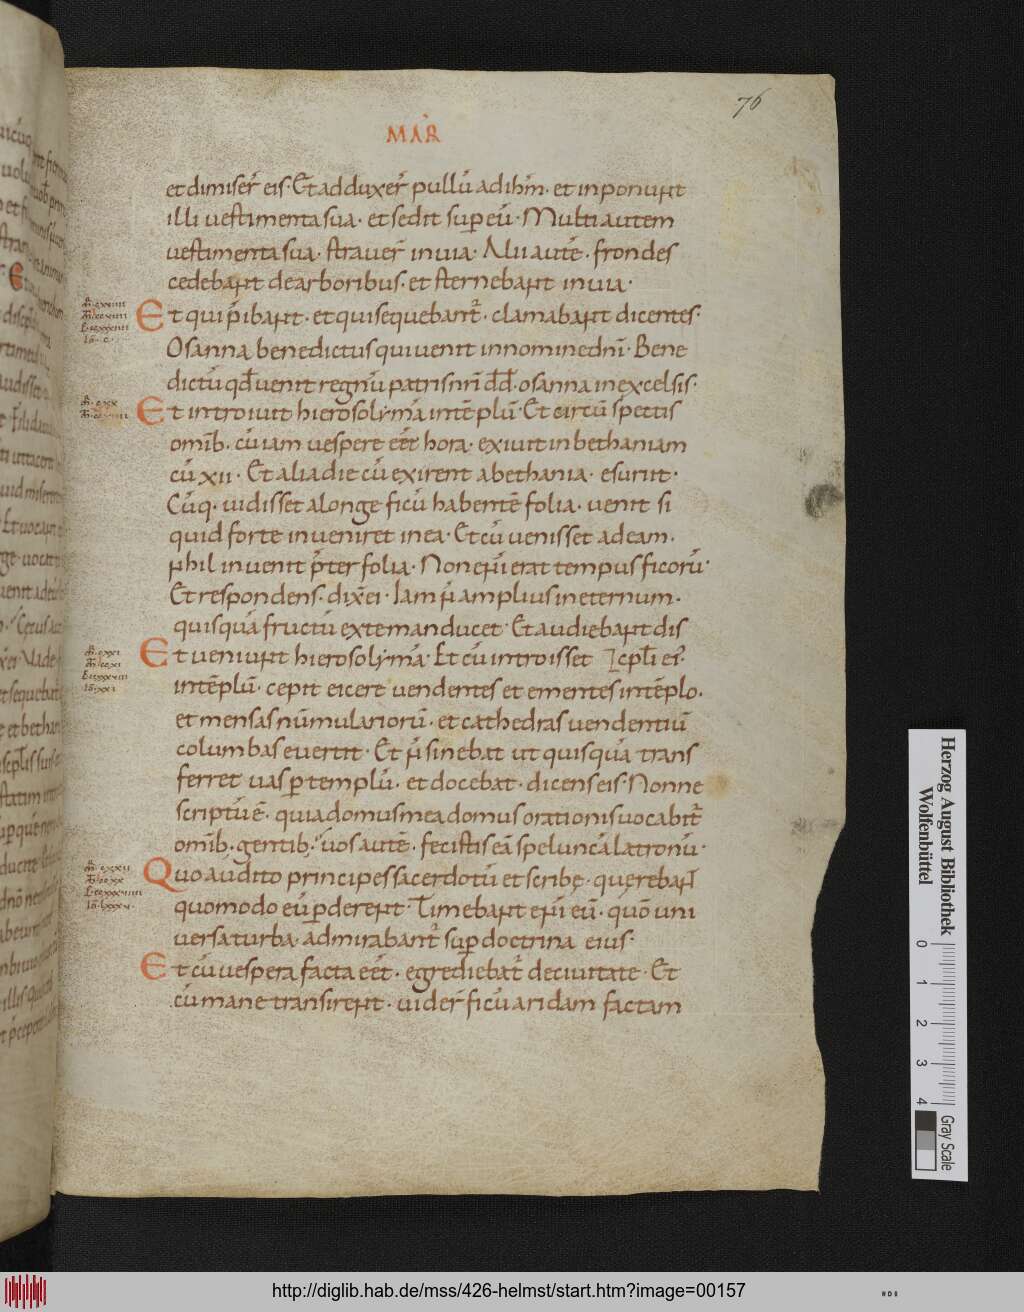 76
MAR
et dimiser̄ eis· Et adduxer̄ pullū ad ihm̄· et inponunt
illi vestimenta sua· et sedit sup eū· Multi autem
vestimenta sua· straver̄ in via· Alii autē· frondes
cedebant de arboribus· et sternebant in via·
Et qui p̄ibant· et qui sequebant̄· clamabant dicentes·
Osanna benedictus qui venit in nomine dn̄i· Bene
dictū qd̄ venit regnū patris nr̄i dd̄· osanna in excelsis·
Et introivit hierosolymā in tēplū· Et circū spectis
omīb· cū iam vespere eēt hora· exivit in bethaniam
cū xii· Et alia die cū exirent a bethania· esuriit·
Cūq· vidisset a longe ficū habentē folia· venit si
quid forte inveniret in ea· Et cū venisset ad eam·
nihil invenit p̄ter folia· Non eni erat tempus ficorū·
Et respondens· dix̄ ei· Iam n̄ amplius in eternum·
quisquā fructū ex te manducet· Et audiebant dis
cpl̄i ei·
Et veniunt hierosolymā· Et cū introisset
in tēplū· cepit eicere vendentes et ementes in tēplo·
et mensas nūmulariorū· et cathedras vendentiū
columbas evertit· Et n̄ sinebat ut quisquā trans
ferret vas p templū· et docebat· dicens eis· Nonne
scriptū ē· quia domus mea domus orationis vocabit̄
omīb· gentib· vos autē· fecistis eā speluncā latronū·
Quo audito principes sacerdotū et scribę· quęrebant
quomodo eū pderent· Timebant eni eū· quō uni
versa turba· admirabant̄ sup doctrina eius·
Et cū vespera facta eēt· egrediebat̄ de civitate· Et
cū mane transirent· vider̄ ficū aridam factam
Herzog August Bibliothek
Wolfenbüttel
0 1 2 3 4
Gray Scale
http://diglib.hab.de/mss/426-helmst/start.htm?image=00157